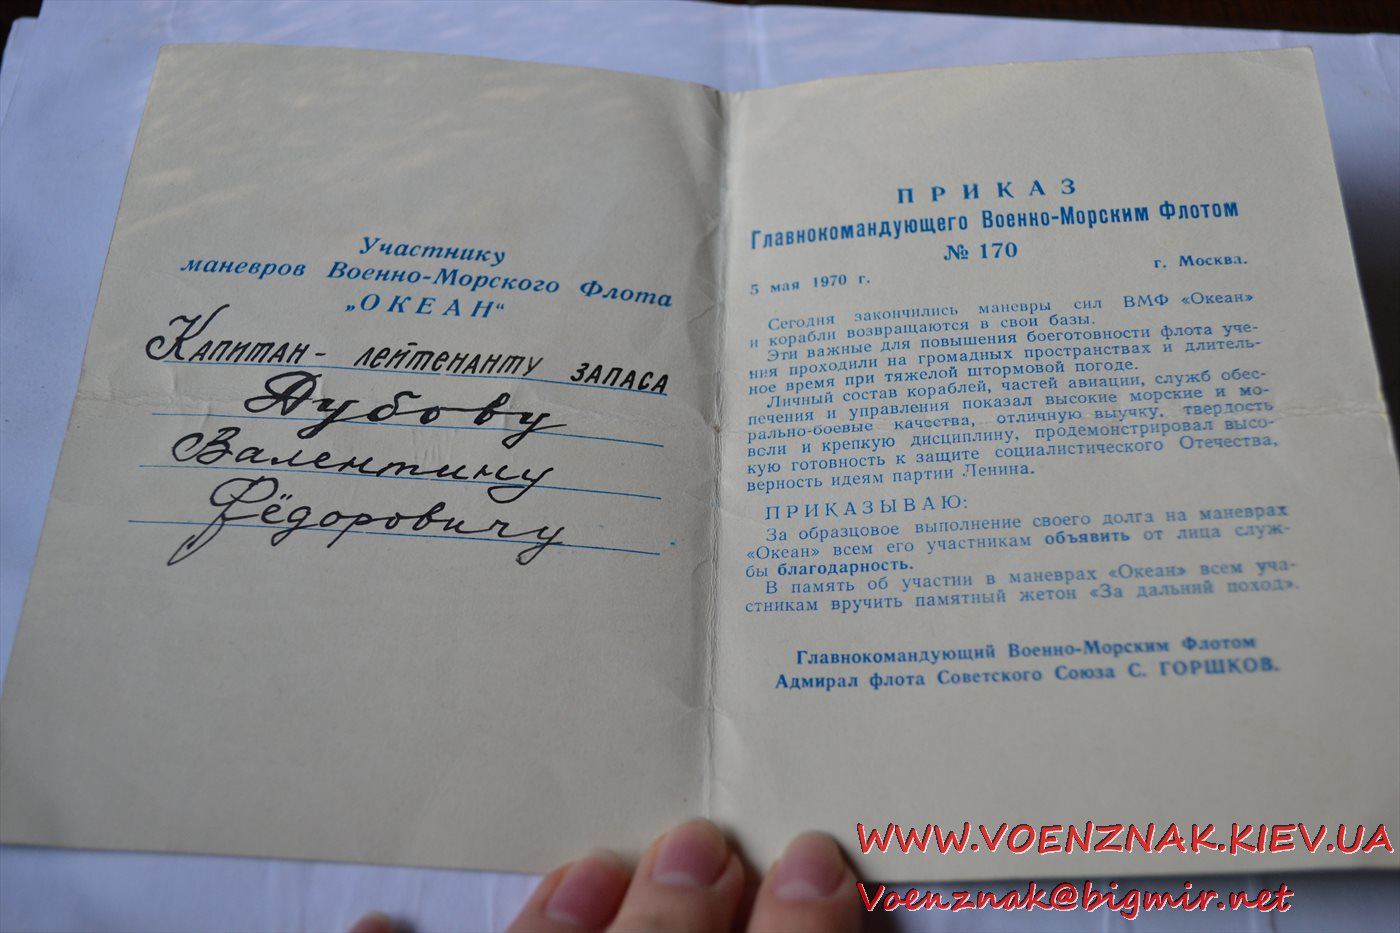 Участнику
маневров Военно-Морского Флота
„ОКЕАН“
Капитан-лейтенанту запаса
Дубову
Валентину
Фёдоровичу
ПРИКАЗ
Главнокомандующего Военно-Морским Флотом
№ 170
5 мая 1970 г. г. Москва.
Сегодня закончились маневры сил ВМФ «Океан»
и корабли возвращаются в свои базы.
Эти важные для повышения боеготовности флота уче-
ния проходили на громадных пространствах и длитель-
ное время при тяжелой штормовой погоде.
Личный состав кораблей, частей авиации, служб обес-
печения и управления показал высокие морские и мо-
рально-боевые качества, отличную выучку, твердость
воли и крепкую дисциплину, продемонстрировал высо-
кую готовность к защите социалистического Отечества,
верность идеям партии Ленина.
ПРИКАЗЫВАЮ:
За образцовое выполнение своего долга на маневрах
«Океан» всем его участникам объявить от лица служ-
бы благодарность.
В память об участии в маневрах «Океан» всем уча-
стникам вручить памятный жетон «За дальний поход».
Главнокомандующий Военно-Морским Флотом
Адмирал флота Советского Союза С. ГОРШКОВ.
WWW.VOENZNAK.KIEV.UA
Voenznak@bigmir.net